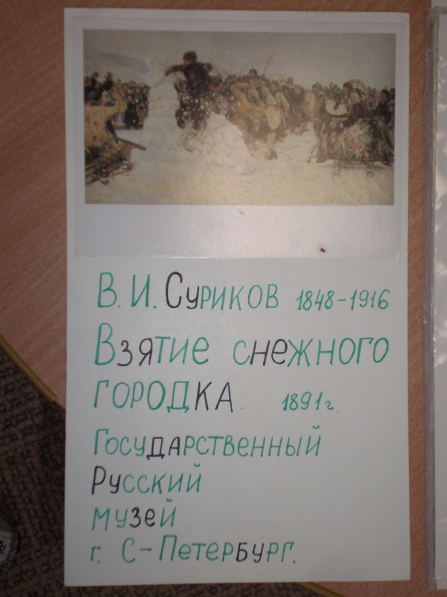 В. И. Суриков 1848-1916
Взятие снежного
городка. 1891г.
Государственный
Русский
музей
г. С-Петербург.